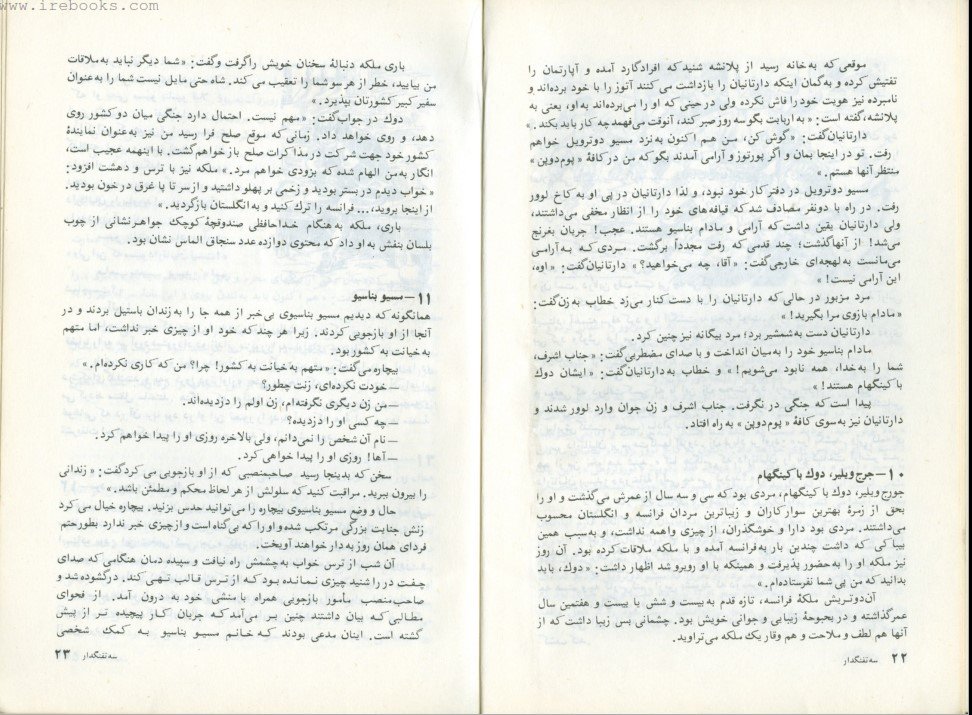 www.irebooks.com
موقعی که به‌خانه رسید از پلانشه شنید که افراد گارد آمده و آپارتمان را
تفتیش کرده و به‌گمان اینکه دارتانیان را بازداشت می‌کنند آتوز را با خود برده‌اند و
نامبرده نیز هویت خود را فاش نکرده ولی در حینی که او را می‌برده‌اند به‌او، یعنی به
پلانشه، گفته است: «به ارباب بگو سه روز صبر کند، آنوقت می‌فهمد چه کار باید بکند.»
دارتانیان گفت: «گوش کن، من هم اکنون به‌نزد مسیو دوترویل خواهم
رفت. تو در اینجا بمان و اگر پورتوز و آرامی آمدند بگو که من در کافهٔ «پوم‌دوپن»
منتظر آنها هستم.»
مسیو دوترویل در دفتر کار خود نبود، و لذا دارتانیان در پی او به کاخ لوور
رفت. در راه با دونفر مصادف شد که قیافه‌های خود را از انظار مخفی می‌داشتند،
ولی دارتانیان یقین داشت که آرامی و مادام بناسیو هستند. عجب! جریان بغرنج
می‌شد! از آنها گذشت؛ چند قدمی که رفت مجدداً برگشت. مردی که به‌آرامی
می‌مانست به‌لهجه‌ای خارجی گفت: «آقا، چه می‌خواهید؟» دارتانیان گفت: «اوه،
این آرامی نیست!»
مرد مزبور در حالی که دارتانیان را با دست کنار می‌زد خطاب به‌زن گفت:
«مادام بازوی مرا بگیرید!»
دارتانیان دست به‌شمشیر برد؛ مرد بیگانه نیز چنین کرد.
مادام بناسیو خود را به‌میان انداخت و با صدای مضطربی گفت: «جناب اشرف،
شما را به‌خدا، همه نابود می‌شویم!» و خطاب به‌دارتانیان گفت: «ایشان دوك
باکینگهام هستند!»
پیدا است که جنگی در نگرفت. جناب اشرف و زن جوان وارد لوور شدند و
دارتانیان نیز به‌سوی کافهٔ «پوم‌دوپن» به راه افتاد.
۱۰ – جرج ویلیر، دوك باکینگهام
جورج ویلیر، دوك باکینگهام، مردی بود که سی و سه سال از عمرش می‌گذشت و او را
بحق از زمرهٔ بهترین سوارکاران و زیباترین مردان فرانسه و انگلستان محسوب
می‌داشتند. مردی بود دارا و خوشگذران، از چیزی واهمه نداشت، و به‌سبب همین
بیباکی که داشت چندین بار به‌فرانسه آمده و با ملکه ملاقات کرده بود. آن روز
نیز ملکه او را به‌حضور پذیرفت و همینکه با او روبرو شد اظهار داشت: «دوك، باید
بدانید که من پی شما نفرستاده‌ام.»
آن‌دوتریش ملکهٔ فرانسه، تازه قدم به‌بیست و شش یا بیست و هفتمین سال
عمر گذاشته و در بحبوحهٔ زیبایی و جوانی خویش بود. چشمانی بس زیبا داشت که از
آنها هم لطف و ملاحت و هم وقار یك ملکه می‌تراوید.
۲۲ سه تفنگدار
باری ملکه دنبالهٔ سخنان خویش را گرفت و گفت: «شما دیگر نباید به‌ملاقات
من بیایید، خطر از هر سو شما را تعقیب می‌کند. شاه حتی مایل نیست شما را به‌عنوان
سفیر کبیر کشورتان بپذیرد.»
دوك در جواب گفت: «مهم نیست. احتمال دارد جنگی میان دو کشور روی
دهد، و روی خواهد داد. زمانی که موقع صلح فرا رسید من نیز به‌عنوان نمایندهٔ
کشور خود جهت شرکت در مذاکرات صلح باز خواهم گشت. با اینهمه عجیب است،
انگار به‌من الهام شده که بزودی خواهم مرد.» ملکه نیز با ترس و دهشت افزود:
«خواب دیدم در بستر بودید و زخمی بر پهلو داشتید و از سر تا پا غرق در خون بودید.
از اینجا بروید،... فرانسه را ترك کنید و به‌انگلستان بازگردید.»
باری، ملکه به‌هنگام خداحافظی صندوقچهٔ کوچك جواهر نشانی از چوب
بلسان بنفش به‌او داد که محتوی دوازده عدد سنجاق الماس نشان بود.
۱۱ – مسیو بناسیو
همانگونه که دیدیم مسیو بناسیوی بی‌خبر از همه جا را به‌زندان باستیل بردند و در
آنجا از او بازجویی کردند. زیرا هر چند که خود او از چیزی خبر نداشت، اما متهم
به‌خیانت به کشور بود.
بیچاره می‌گفت: «متهم به‌خیانت به کشور! چرا؟ من که کاری نکرده‌ام.»
– خودت نکرده‌ای، زنت چطور؟
– من زن دیگری نگرفته‌ام، زن اولم را دزدیده‌اند.
– چه کسی او را دزدیده؟
– نام آن شخص را نمی‌دانم، ولی بالاخره روزی او را پیدا خواهم کرد.
– آها! روزی او را پیدا خواهی کرد.
سخن که بدینجا رسید صاحبمنصبی که از او بازجویی می‌کرد گفت: «زندانی
را بیرون ببرید. مراقبت کنید که سلولش از هر لحاظ محکم و مطمئن باشد.»
حال و وضع مسیو بناسیوی بیچاره را می‌توانید حدس بزنید. بیچاره خیال می‌کرد
زنش جنایت بزرگی مرتکب شده و او را که بی‌گناه است و از چیزی خبر ندارد بطور حتم
فردای همان روز به‌دار خواهند آویخت.
آن شب از ترس خواب به‌چشمش راه نیافت و سپیده دمان هنگامی که صدای
چفت در را شنید چیزی نمانده بود که از ترس قالب تهی کند. در گشوده شد و
صاحب‌منصب مأمور بازجویی همراه با منشی خود به درون آمد. از فحوای
مطالبی که بیان داشتند چنین بر می‌آمد که جریان کار پیچیده تر از پیش
گشته است. اینان مدعی بودند که خانم مسیو بناسیو به کمك شخصی
سه تفنگدار ۲۳